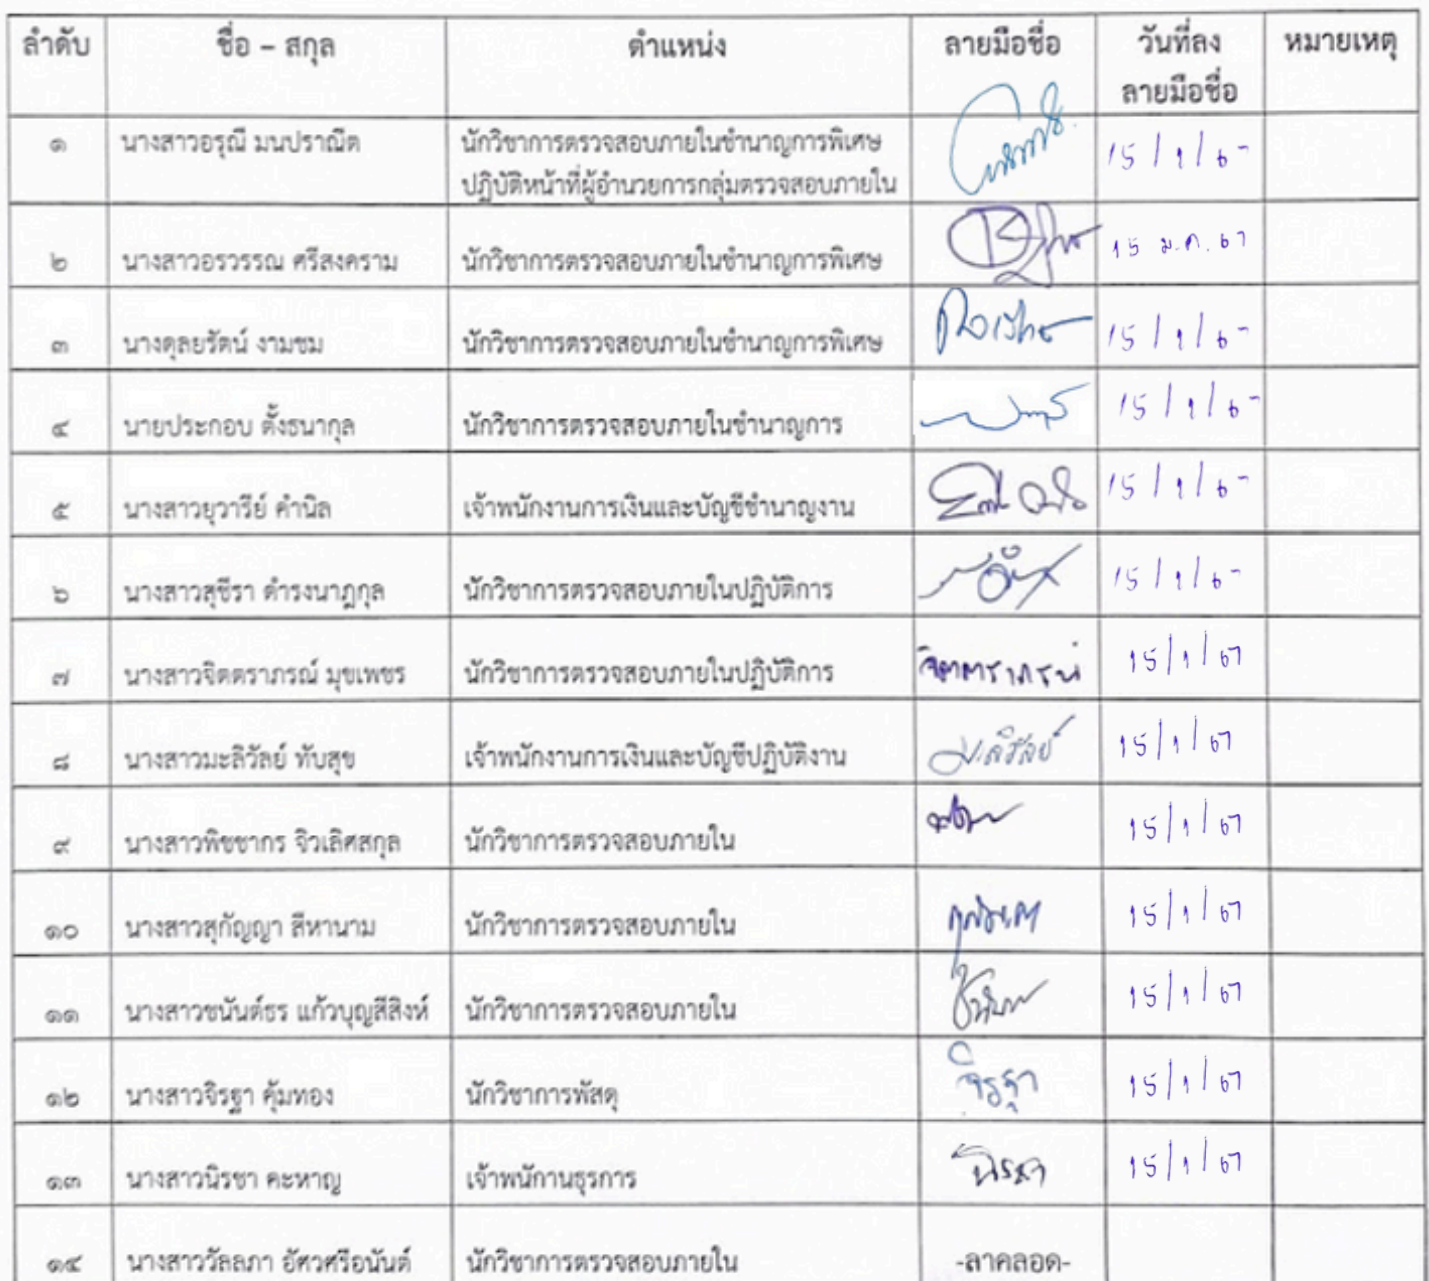 ลำดับ ชื่อ – สกุล ตำแหน่ง ลายมือชื่อ วันที่ลง หมายเหตุ
ลายมือชื่อ
๑ นางสาวอรุณี มนปราณีต นักวิชาการตรวจสอบภายในชำนาญการพิเศษ 15/1/67
ปฏิบัติหน้าที่ผู้อำนวยการกลุ่มตรวจสอบภายใน
๒ นางสาวอรวรรณ ศรีสงคราม นักวิชาการตรวจสอบภายในชำนาญการพิเศษ 15 ม.ค. 67
๓ นางดุลยรัตน์ งามชม นักวิชาการตรวจสอบภายในชำนาญการพิเศษ 15/1/67
๔ นายประกอบ ตั้งธนากุล นักวิชาการตรวจสอบภายในชำนาญการ 15/1/67
๕ นางสาวยุวารีย์ คำนิล เจ้าพนักงานการเงินและบัญชีชำนาญงาน 15/1/67
๖ นางสาวสุชีรา ดำรงนาฎกุล นักวิชาการตรวจสอบภายในปฏิบัติการ 15/1/67
๗ นางสาวจิตตราภรณ์ มุขเพชร นักวิชาการตรวจสอบภายในปฏิบัติการ จิตตราภรณ์ 15/1/67
๘ นางสาวมะลิวัลย์ ทับสุข เจ้าพนักงานการเงินและบัญชีปฏิบัติงาน มะลิวัลย์ 15/1/67
๙ นางสาวพิชชากร จิวเลิศสกุล นักวิชาการตรวจสอบภายใน 15/1/67
๑๐ นางสาวสุกัญญา สีหานาม นักวิชาการตรวจสอบภายใน 15/1/67
๑๑ นางสาวชนันต์ธร แก้วบุญสีสิงห์ นักวิชาการตรวจสอบภายใน 15/1/67
๑๒ นางสาวจิรฐา คุ้มทอง นักวิชาการพัสดุ จิรฐา 15/1/67
๑๓ นางสาวนิรชา คะหาญ เจ้าพนักานธุรการ นิรชา 15/1/67
๑๔ นางสาววัลลภา อัศวศรีอนันต์ นักวิชาการตรวจสอบภายใน -ลาคลอด-